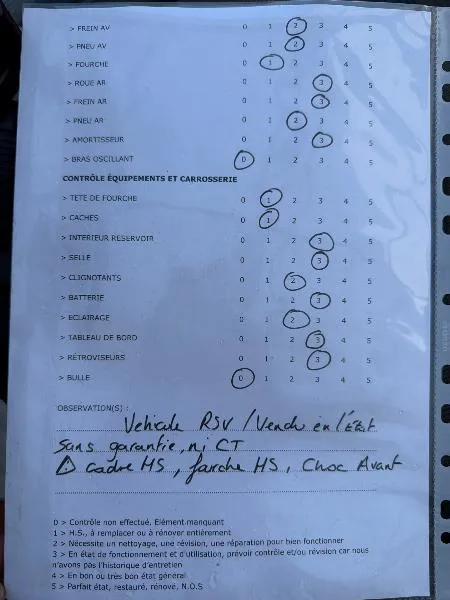 > FREIN AV 0 1 2 3 4 5
> PNEU AV 0 1 2 3 4 5
> FOURCHE 0 1 2 3 4 5
> ROUE AR 0 1 2 3 4 5
> FREIN AR 0 1 2 3 4 5
> PNEU AR 0 1 2 3 4 5
> AMORTISSEUR 0 1 2 3 4 5
> BRAS OSCILLANT 0 1 2 3 4 5
CONTRÔLE ÉQUIPEMENTS ET CARROSSERIE
> TETE DE FOURCHE 0 1 2 3 4 5
> CACHES 0 1 2 3 4 5
> INTERIEUR RESERVOIR 0 1 2 3 4 5
> SELLE 0 1 2 3 4 5
> CLIGNOTANTS 0 1 2 3 4 5
> BATTERIE 0 1 2 3 4 5
> ECLAIRAGE 0 1 2 3 4 5
> TABLEAU DE BORD 0 1 2 3 4 5
> RÉTROVISEURS 0 1 2 3 4 5
> BULLE 0 1 2 3 4 5
OBSERVATION(S) :
Vehicule RSV / Vendu en l'État
Sans garantie, ni CT
⚠ cadre HS, forche HS, Choc Avant
0 > Contrôle non effectué, Elément manquant
1 > H.S., à remplacer ou à rénover entièrement
2 > Nécessite un nettoyage, une révision, une réparation pour bien fonctionner
3 > En état de fonctionnement et d'utilisation, prévoir contrôle et/ou révision car nous
n'avons pas l'historique d'entretien
4 > En bon ou très bon état général
5 > Parfait état, restauré, rénové, N.O.S